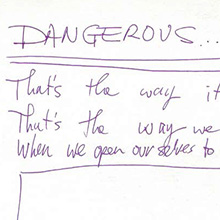 DANGEROUS...
That's the way it
That's the way we
When we open ourselves to